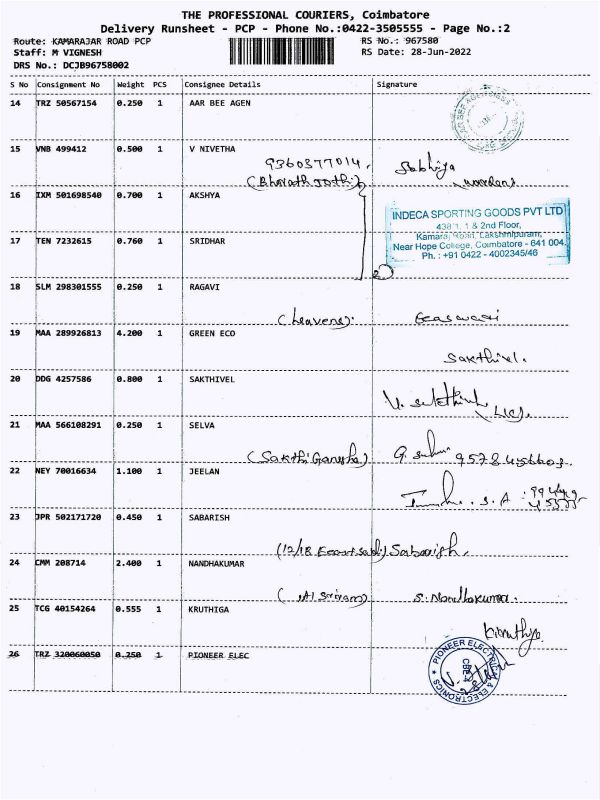 THE PROFESSIONAL COURIERS, Coimbatore
Delivery Runsheet - PCP - Phone No.:0422-3505555 - Page No.:2
Route: KAMARAJAR ROAD PCP
RS No.: 967580
Staff: M VIGNESH
RS Date: 28-Jun-2022
DRS No.: DCJB96758002
S No Consignment No Weight PCS Consignee Details Signature
14 TRZ 50567154 0.250 1 AAR BEE AGEN
15 VNB 499412 0.500 1 V NIVETHA
9360377014.
(Bharath Jothi)
16 IXM 501698540 0.700 1 AKSHYA
INDECA SPORTING GOODS PVT LTD
1 & 2nd Floor,
Kamaraj Road, Lakshmipuram,
Near Hope College, Coimbatore - 641 004.
Ph. : +91 0422 - 4002345/46
17 TEN 7232615 0.760 1 SRIDHAR
2
18 SLM 298301555 0.250 1 RAGAVI
19 MAA 289926813 4.200 1 GREEN ECO
Sakthivel.
20 DDG 4257586 0.800 1 SAKTHIVEL
21 MAA 566108291 0.250 1 SELVA
(Sakthi Ganesha)
22 NEY 70016634 1.100 1 JEELAN
23 JPR 502171720 0.450 1 SABARISH
Sabarish.
24 CMM 208714 2.400 1 NANDHAKUMAR
S. Nandhakumar.
25 TCG 40154264 0.555 1 KRUTHIGA
Kiruthya
26 TRZ 320060050 0.250 1 PIONEER ELEC
PIONEER ELECTRICAL & ELECTRONICS
CBE-4